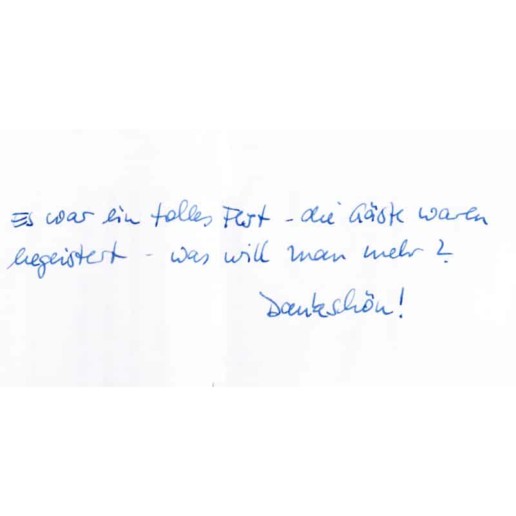 Es war ein tolles Fest - die Gäste waren
begeistert - was will man mehr?
Dankschön!